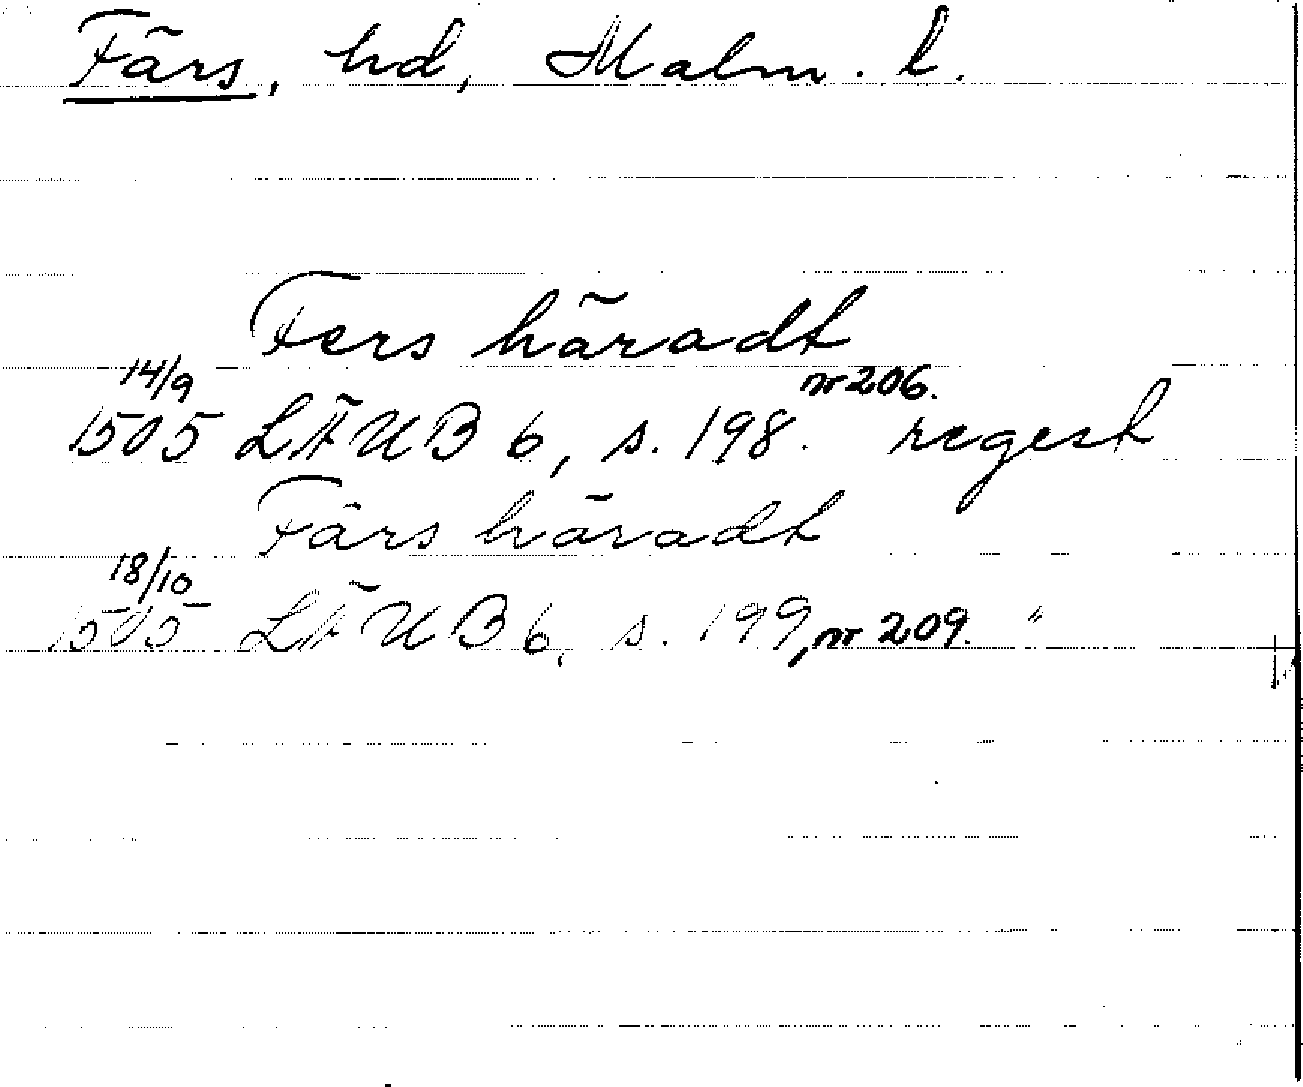 Färs, hd, Malm. l.
Fers häradt
14/9 nr 206.
1505 LÄUB 6, s. 198. regest
Färs häradt
18/10
1505 LÄUB 6, s. 199, nr 209. "